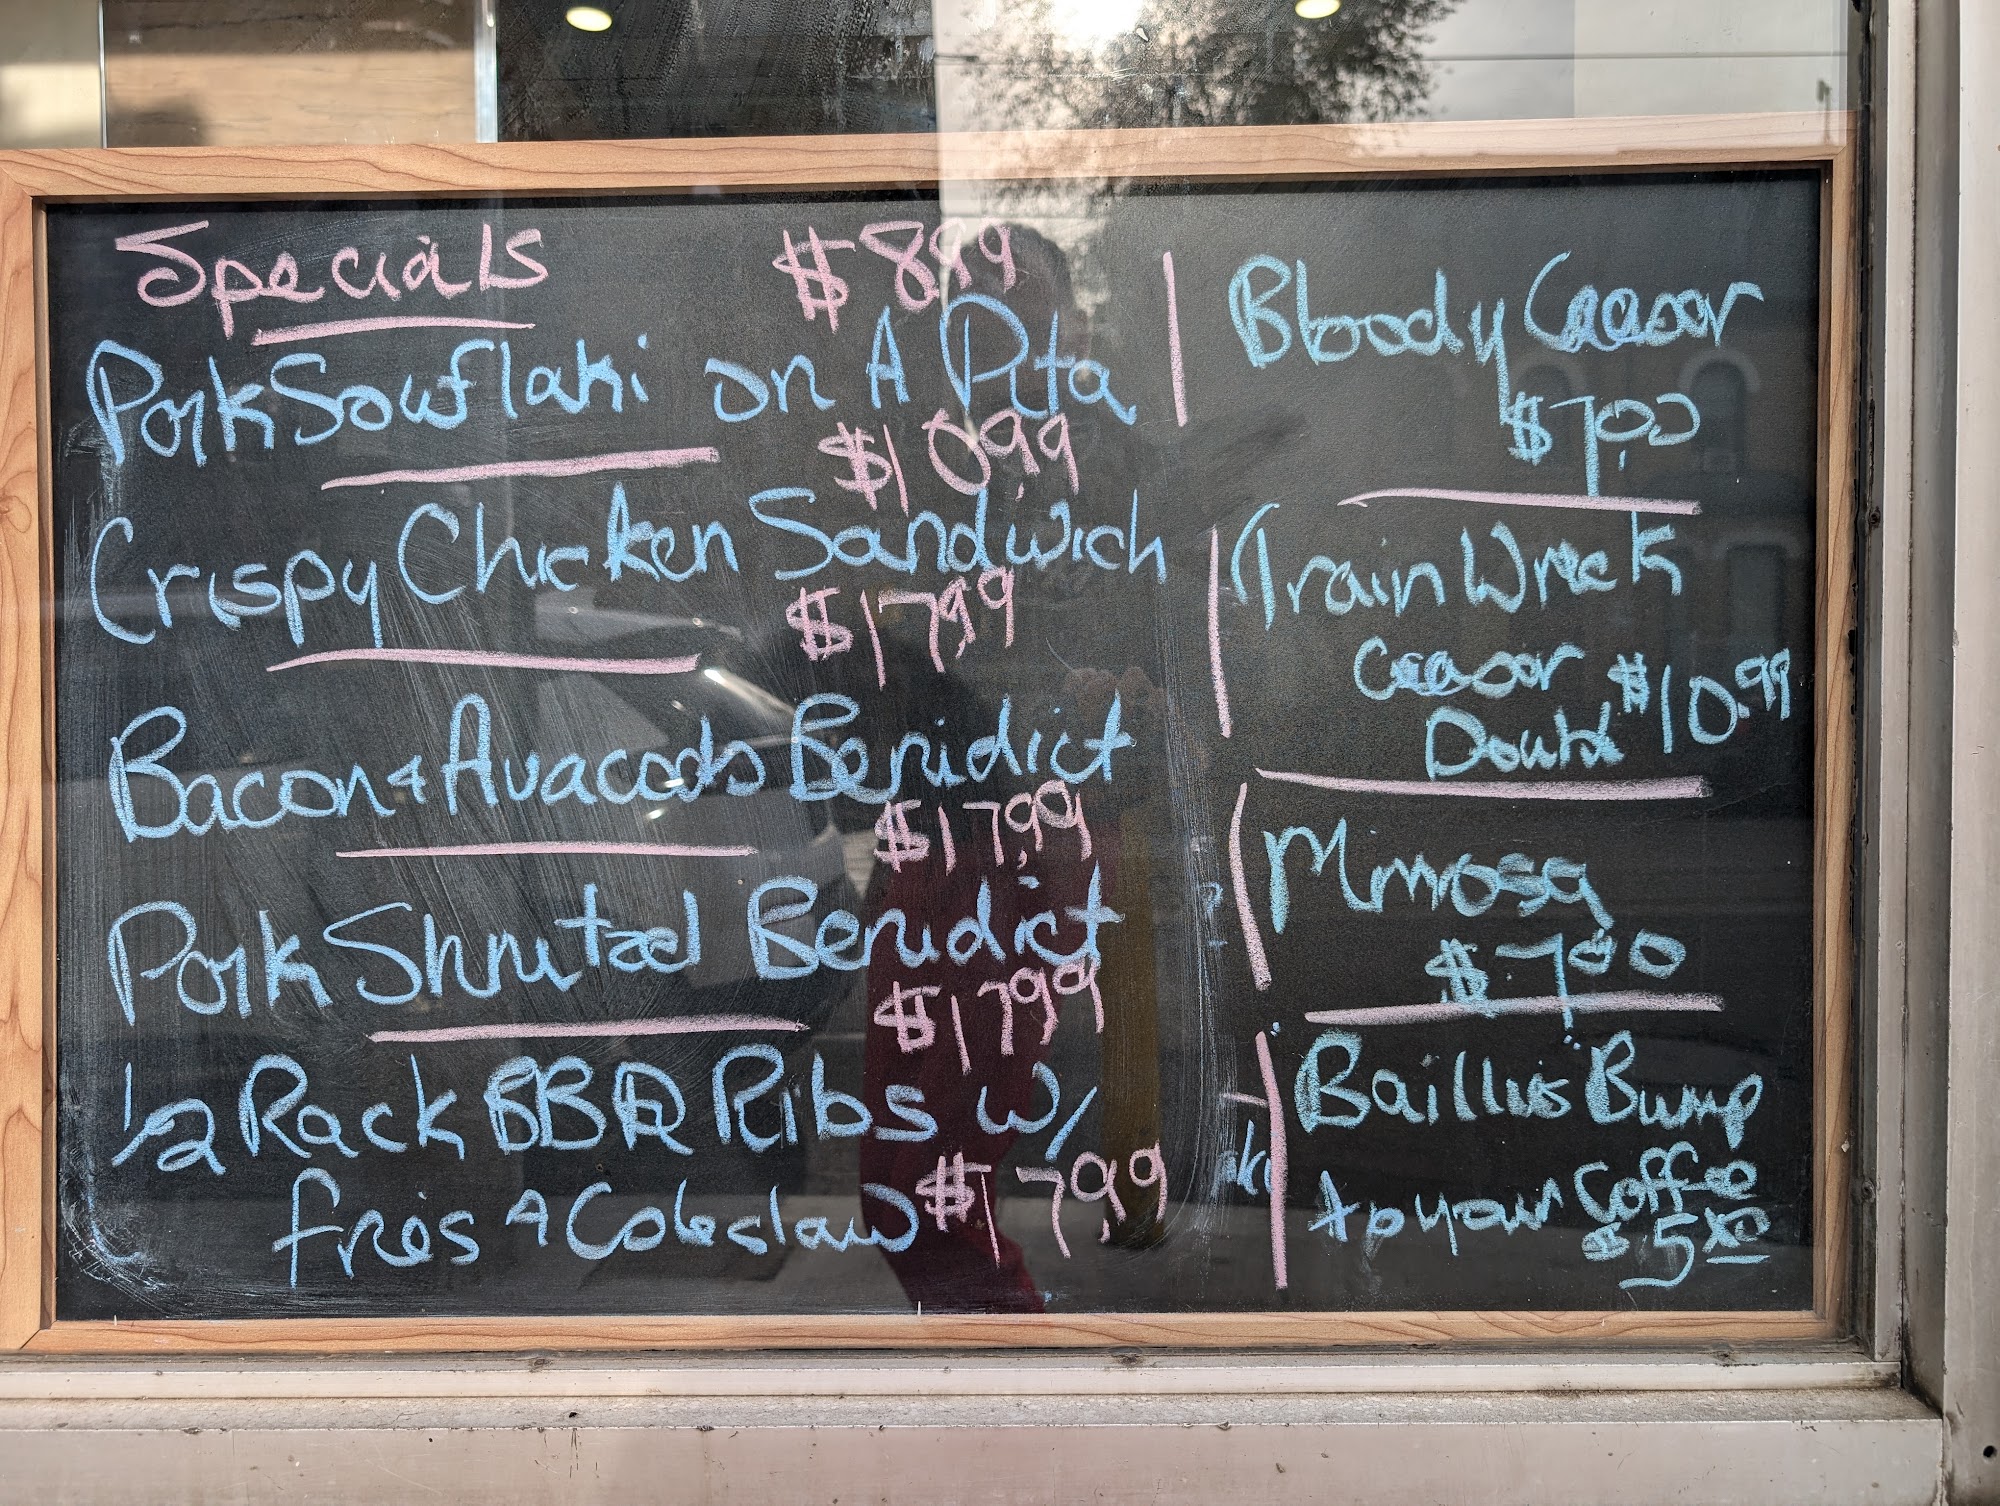 Specials $8.99
Pork Souflaki on A Pita
$10.99
Crispy Chicken Sandwich
$17.99
Bacon & Avacado Benidict
$17.99
Pork Shnitzel Benidict
$17.99
1/2 Rack BBQ Ribs w/
fries & Coleslaw $17.99
Bloody Ceasar
$7.00
Train Wreck
Ceasar $10.99
Double
Mimosa
$7.00
Baillie's Bump
to your Coffee
$5.00